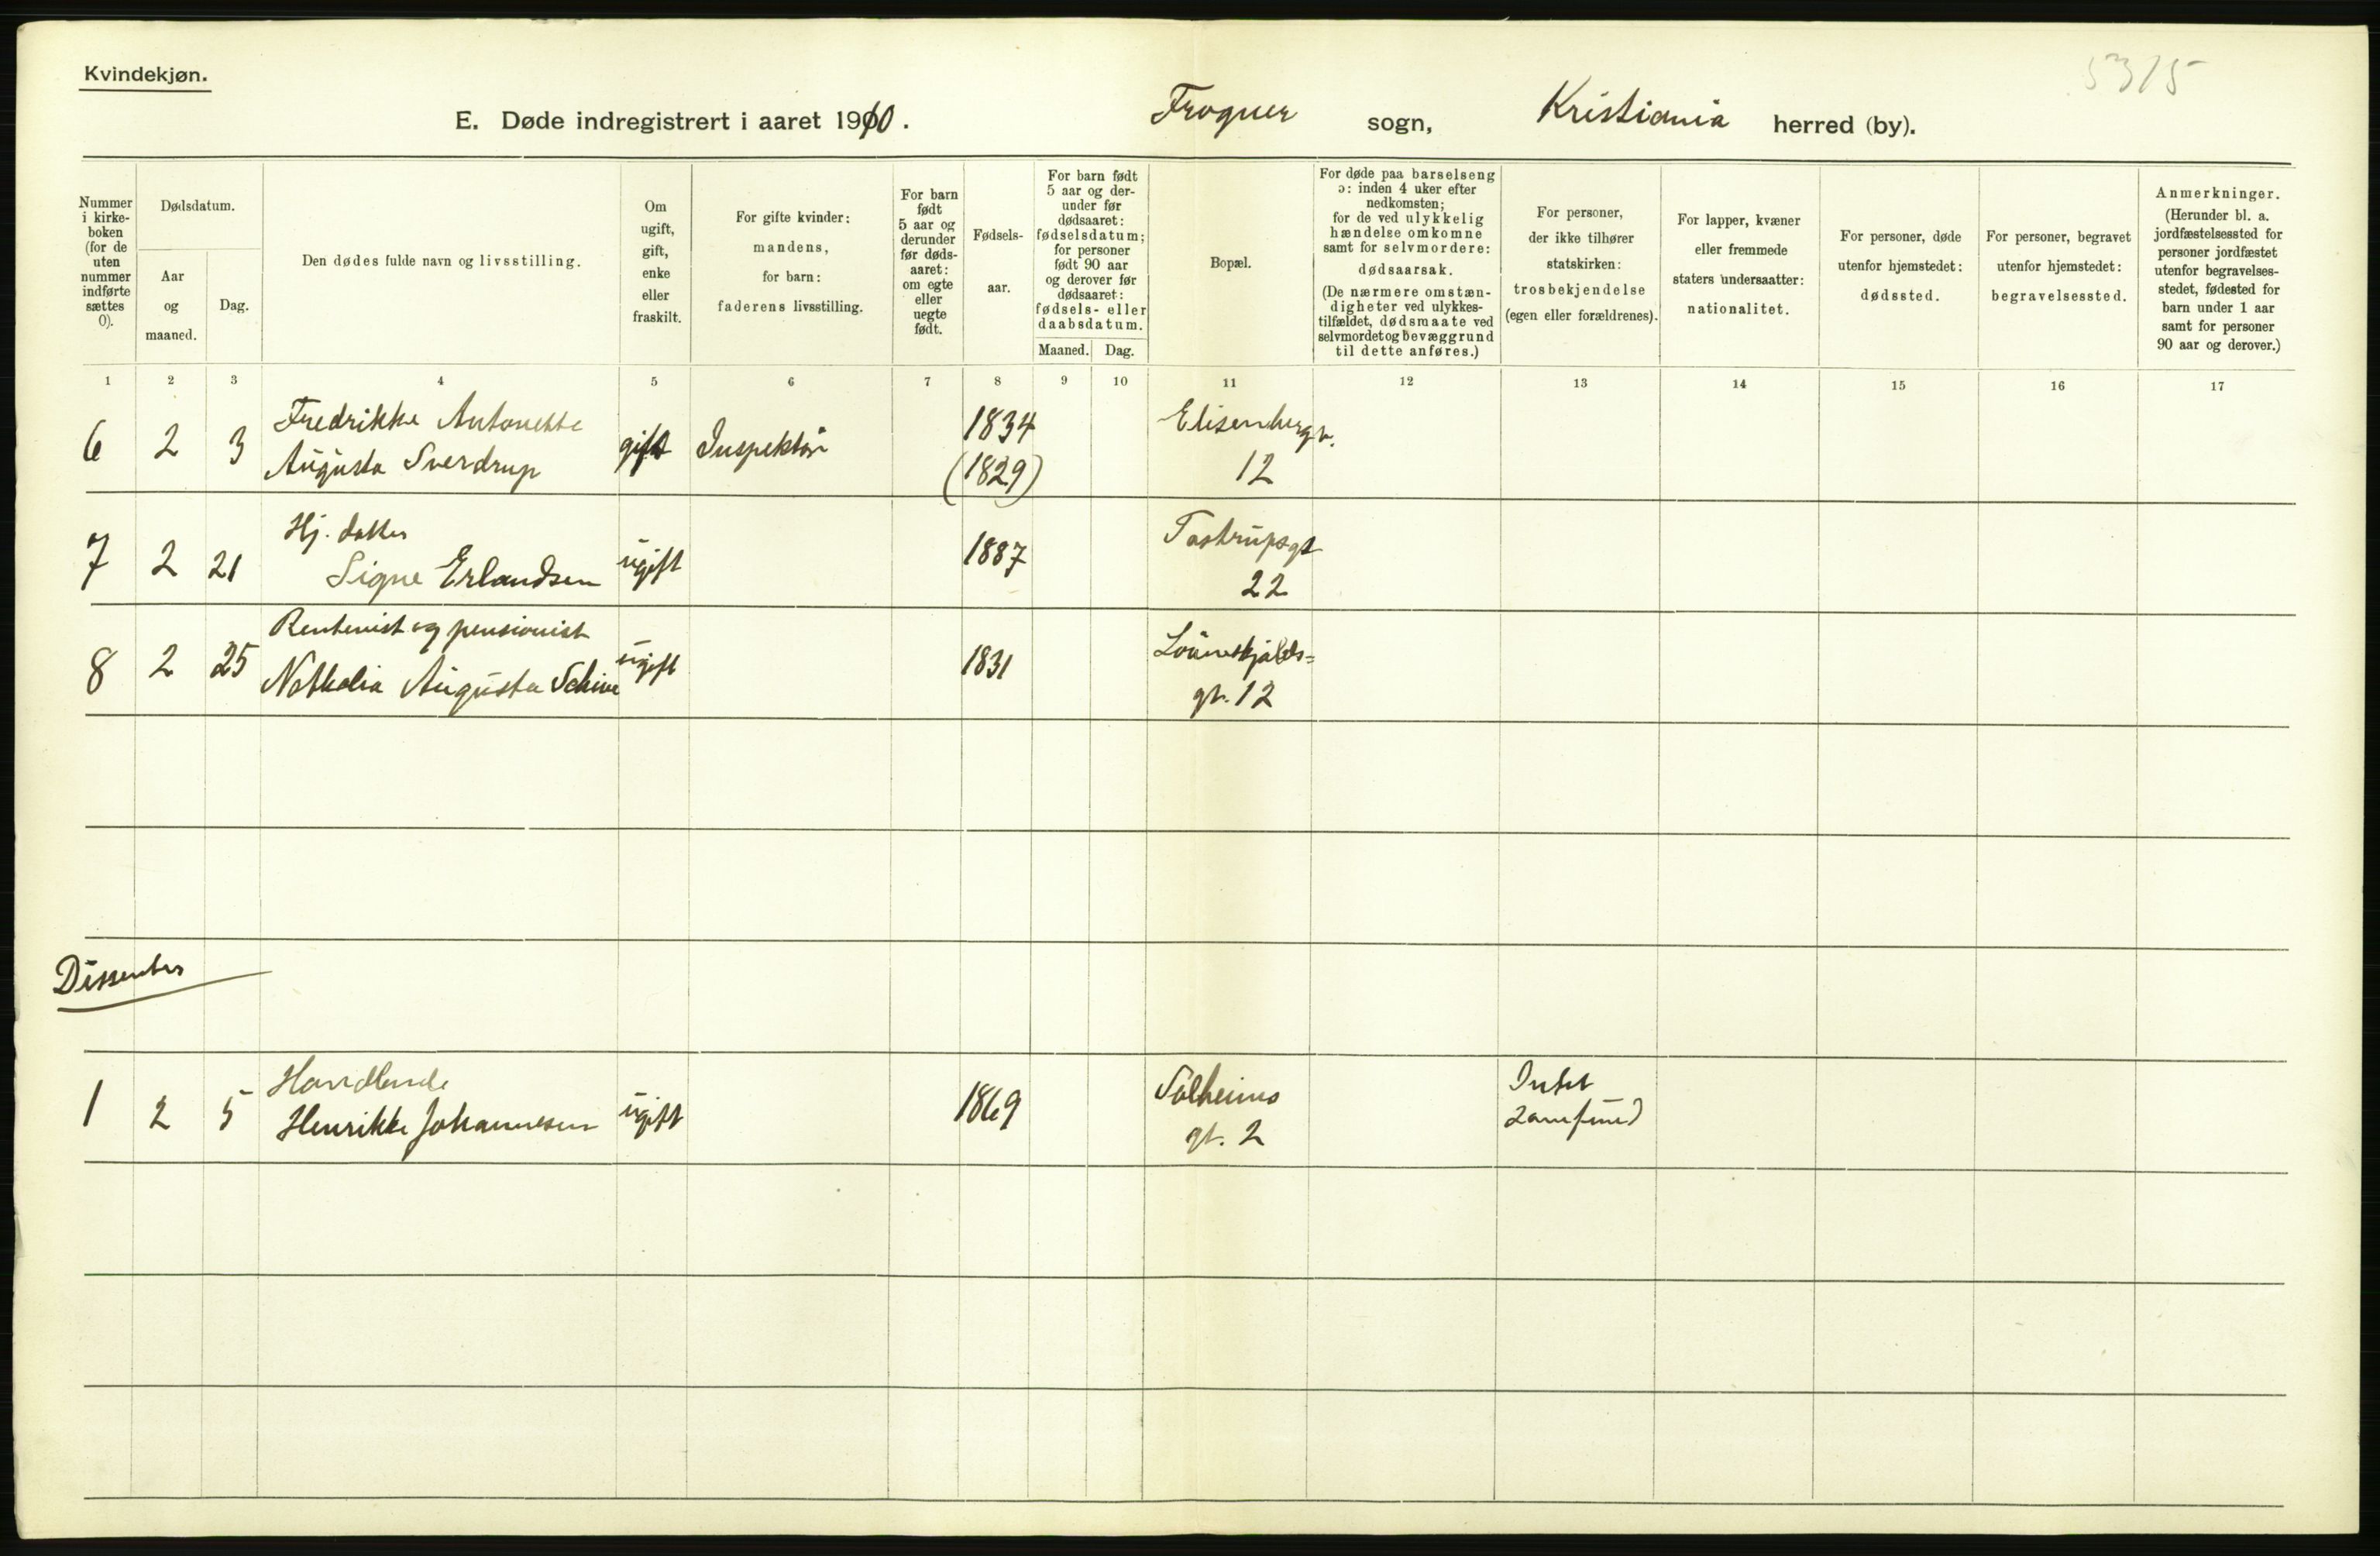 Kvindekjøn.
5315
E. Døde indregistrert i aaret 1910.
Frogner sogn, Kristiania herred (by).
Nummer i kirke- boken (for de uten nummer indførte sættes 0).
Dødsdatum.
Aar og maaned.
Dag.
Den dødes fulde navn og livsstilling.
Om ugift, gift, enke eller fraskilt.
For gifte kvinder: mandens, for barn: faderens livsstilling.
For barn født 5 aar og derunder før døds- aaret: om egte eller uegte født.
Fødsels- aar.
For barn født 5 aar og der- under før dødsaaret: fødselsdatum; for personer født 90 aar og derover før dødsaaret: fødsels- eller daabsdatum.
Maaned. Dag.
Bopæl.
For døde paa barselseng ɔ: inden 4 uker efter nedkomsten; for de ved ulykkelig hændelse omkomne samt for selvmordere: dødsaarsak. (De nærmere omstæn- digheter ved ulykkes- tilfældet, dødsmaate ved selvmordet og bevæggrund til dette anføres.)
For personer, der ikke tilhører statskirken: trosbekjendelse (egen eller forældrenes).
For lapper, kvæner eller fremmede staters undersaatter: nationalitet.
For personer, døde utenfor hjemstedet: dødssted.
For personer, begravet utenfor hjemstedet: begravelsessted.
Anmerkninger. (Herunder bl. a. jordfæstelsessted for personer jordfæstet utenfor begravelses- stedet, fødested for barn under 1 aar samt for personer 90 aar og derover.)
1 2 3 4 5 6 7 8 9 10 11 12 13 14 15 16 17
Fredrikke Antonette 1834 Elisenbergv.
6 2 3 Augusta Sverdrup gift Inspektör (1829) 12
Hj. datter Tostrupsgt
7 2 21 Signe Erlandsen ugift 1887 22
Rentenist og pensionist Lövenskjolds=
8 2 25 Nathalia Augusta Schive ugift 1831 gt. 12
Dissenter
Handlende Solheims Intet
1 2 5 Henrikke Johannesen ugift 1869 gt. 2 samfund